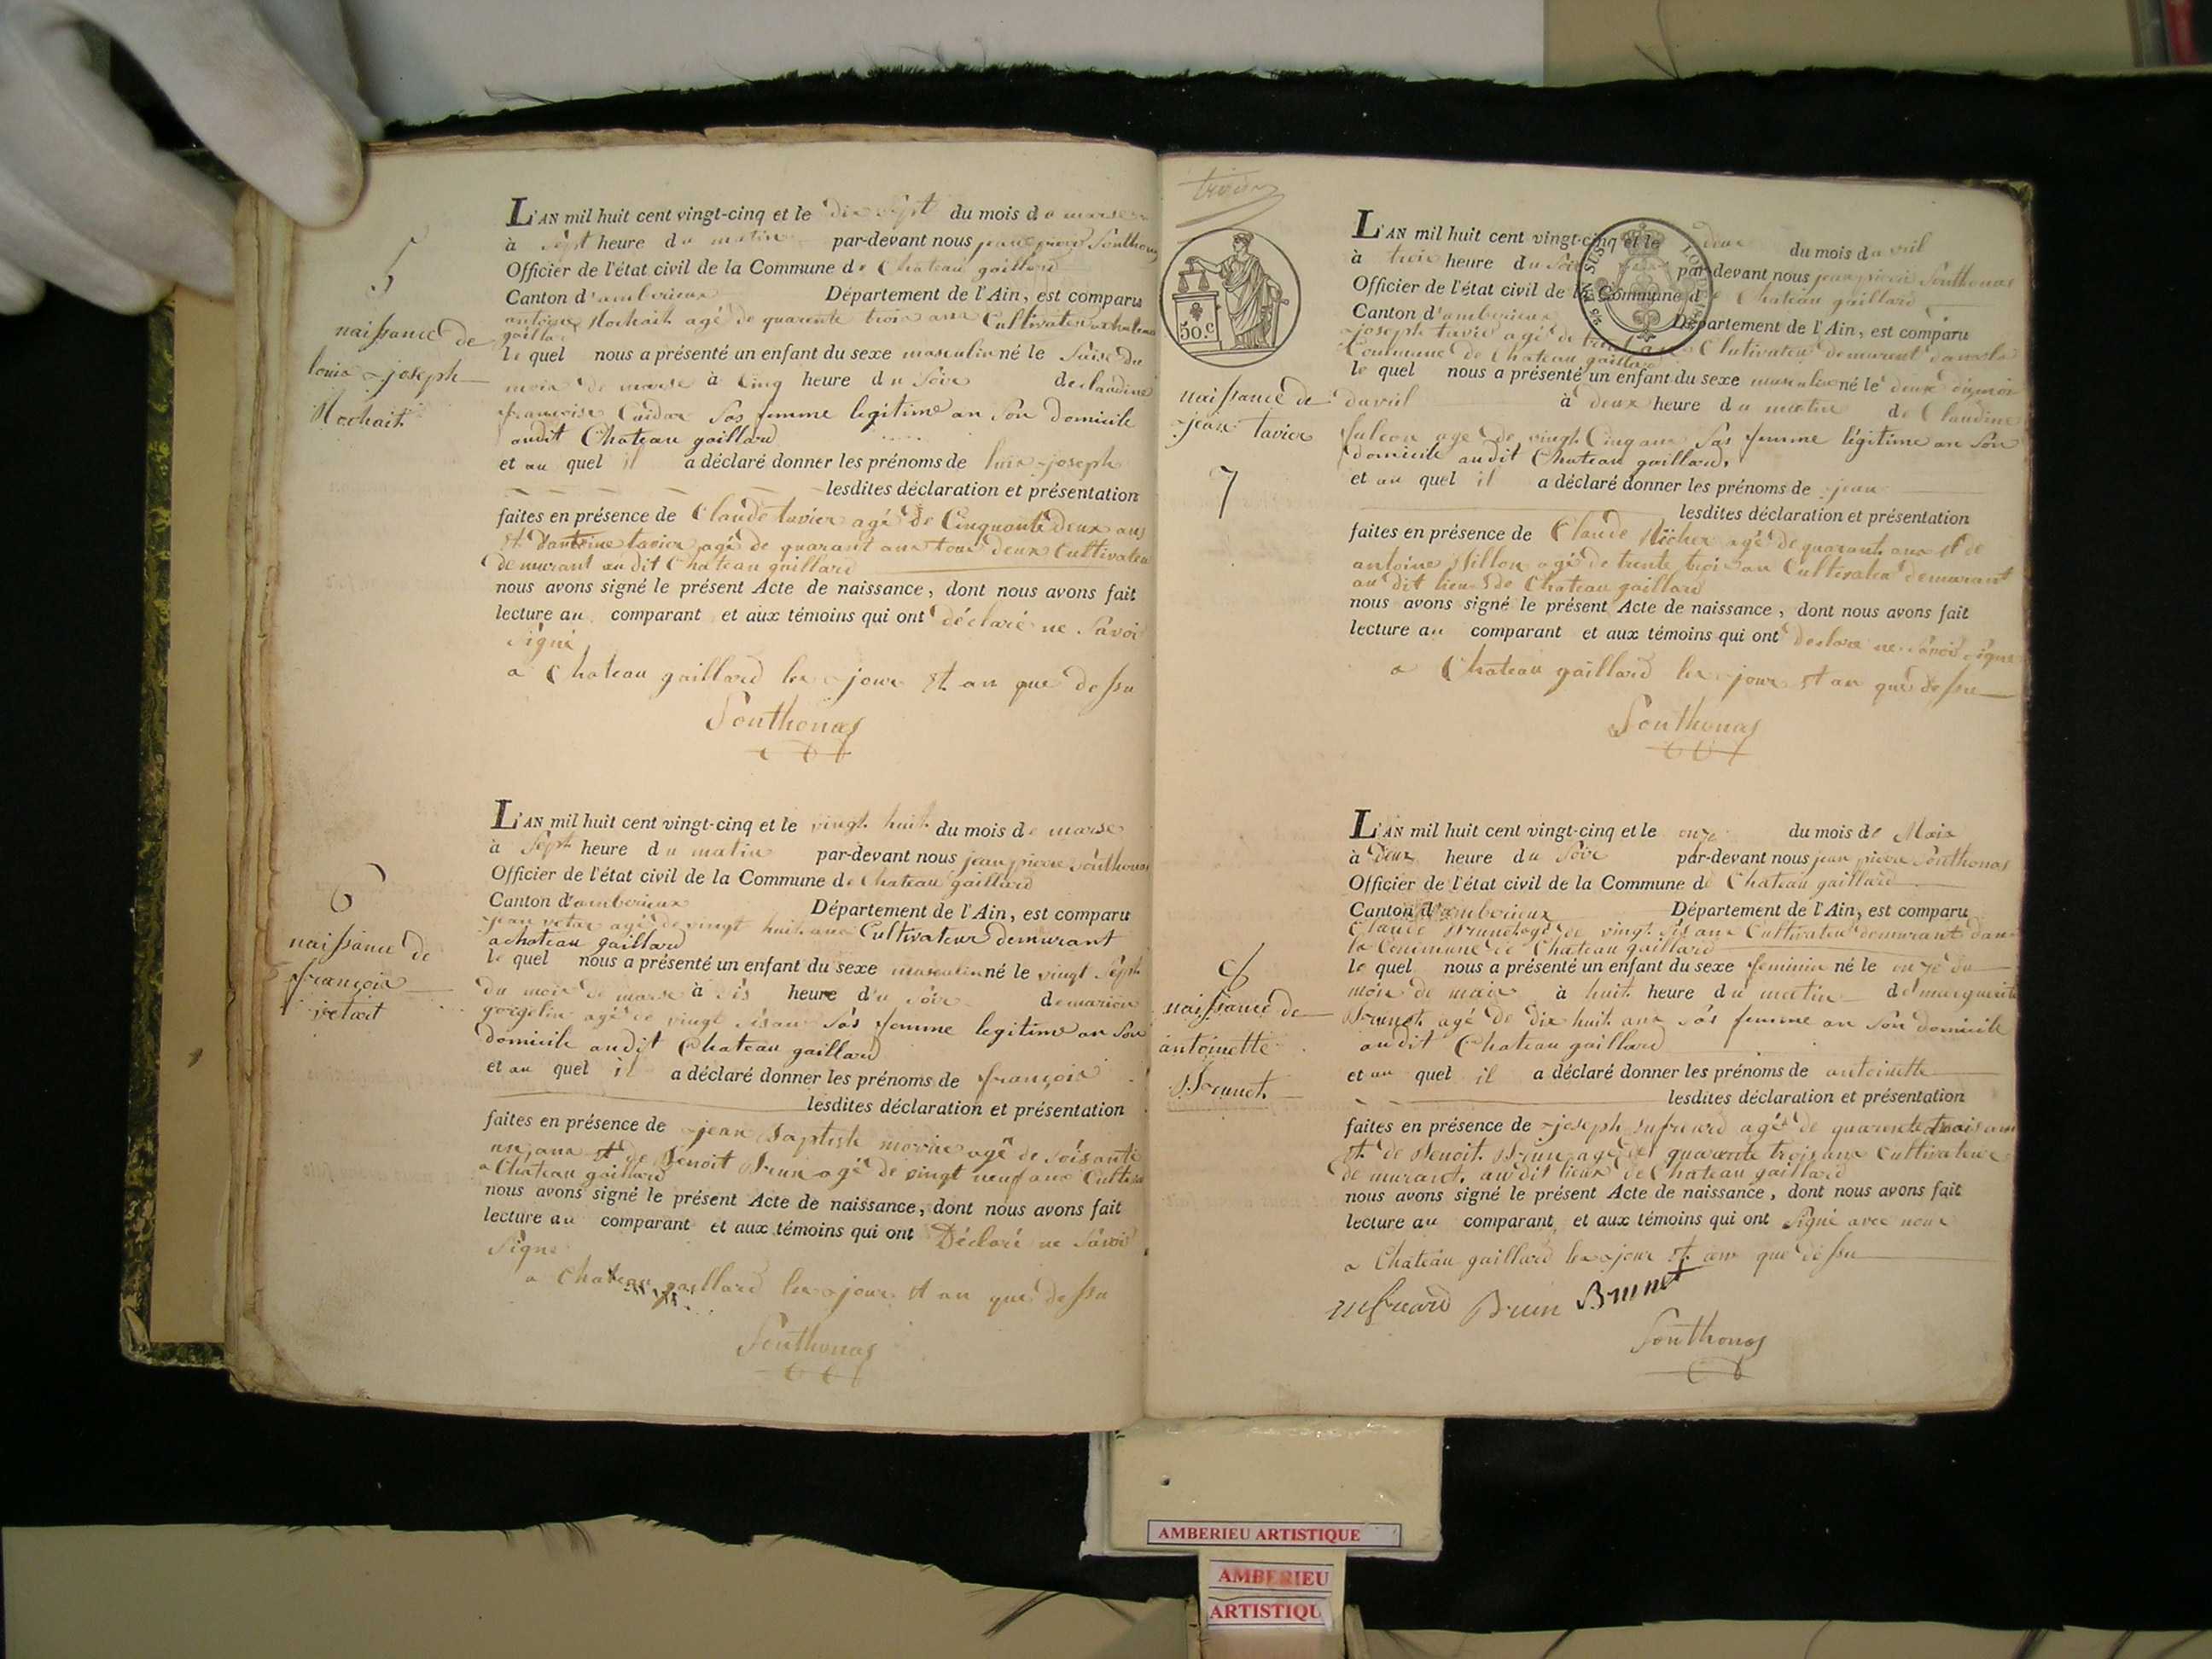 5
naissance de
louis joseph
L'AN mil huit cent vingt-cinq et le dix sept du mois de marse
à sept heure du matin par-devant nous jean pierre Sonthonas
Officier de l'état civil de la Commune de Chateau gaillard
Canton d'amberieux Département de l'Ain, est comparu
antoine agé de quarente trois ans Cultivateur a chateau
gaillard
le quel nous a présenté un enfant du sexe masculin né le saise du
mois de marse à Cinq heure du soire de claudine
françoise sas femme legitime an son domicile
audit Chateau gaillard
et au quel il a déclaré donner les prénoms de louis joseph
lesdites déclaration et présentation
faites en présence de Claude tavier agé de Cinquante deux ans
et dantoine tavier agé de quarant ans tous deux Cultivateu
demurant au dit Chateau gaillard
nous avons signé le présent Acte de naissance, dont nous avons fait
lecture au comparant et aux témoins qui ont déclaré ne savoi
signé
a Chateau gaillard les jour et an que dessu
Sonthonas
6
naissance de
françois
vetait
L'AN mil huit cent vingt-cinq et le vingt huit du mois de marse
à sept heure du matin par-devant nous jean pierre Sonthonas
Officier de l'état civil de la Commune de Chateau gaillard
Canton d'amberieux Département de l'Ain, est comparu
jean agé de vingt huit ans Cultivateur demurant
a chateau gaillard
le quel nous a présenté un enfant du sexe masculin né le vingt sept
du mois de marse à sis heure du soire de marion
agé de vingt sis an sas femme legitime an son
domicile audit Chateau gaillard
et au quel il a déclaré donner les prénoms de françois
lesdites déclaration et présentation
faites en présence de jean Baptiste agé de soisante
un ans et de Benoit Brun agé de vingt neuf ans Cultiva
a Chateau gaillard
nous avons signé le présent Acte de naissance, dont nous avons fait
lecture au comparant et aux témoins qui ont Déclaré ne savoir
signé
a Chateau gaillard les jour et an que dessu
Sonthonas
50.c
naissance de
jean tavier
7
L'AN mil huit cent vingt-cinq et le deux du mois davril
à trois heure du soire par-devant nous jean pierre Sonthonas
Officier de l'état civil de la Commune de Chateau gaillard
Canton d'amberieux Département de l'Ain, est comparu
joseph tavier agé de trent ans Clutivateu demurant dans la
Commune de Chateau gaillard
le quel nous a présenté un enfant du sexe masculin né le deux du moi
davril à deux heure du matin de Claudine
falcon age de vingt Cinq ans sas femme légitime an son
domicile audit Chateau gaillard,
et au quel il a déclaré donner les prénoms de jean
lesdites déclaration et présentation
faites en présence de Claude agé de quarant ans et de
antoine agé de trente trois an Cultivateu demurant
au dit lieu de Chateau gaillard
nous avons signé le présent Acte de naissance, dont nous avons fait
lecture au comparant et aux témoins qui ont declare ne savoir signe
a Chateau gaillard les jour et an que dessu
Sonthonas
8
naissance de
antoinette
Brunet
L'AN mil huit cent vingt-cinq et le onze du mois de Mais
à deux heure du soire par-devant nous jean pierre Sonthonas
Officier de l'état civil de la Commune de Chateau gaillard
Canton d'amberieux Département de l'Ain, est comparu
Claude Brunet agé de vingt sis ans Cultivateu demurant dan
la Commune de Chateau gaillard
le quel nous a présenté un enfant du sexe feminin né le onze du
mois de mais à huit heure du matin de marguerite
Brunet agé de dix huit ans sas femme an son domicile
audit Chateau gaillard
et au quel il a déclaré donner les prénoms de antoinette
lesdites déclaration et présentation
faites en présence de joseph agé de quarente trois ans
et de Benoit Brun agé de quarante trois ans Cultivateur
demurant audit lieux de Chateau gaillard
nous avons signé le présent Acte de naissance, dont nous avons fait
lecture au comparant et aux témoins qui ont signé avec nous
a Chateau gaillard les jour et an que dessu
Brun Brunet
Sonthonas
AMBERIEU ARTISTIQUE
AMBERIEU
ARTISTIQU